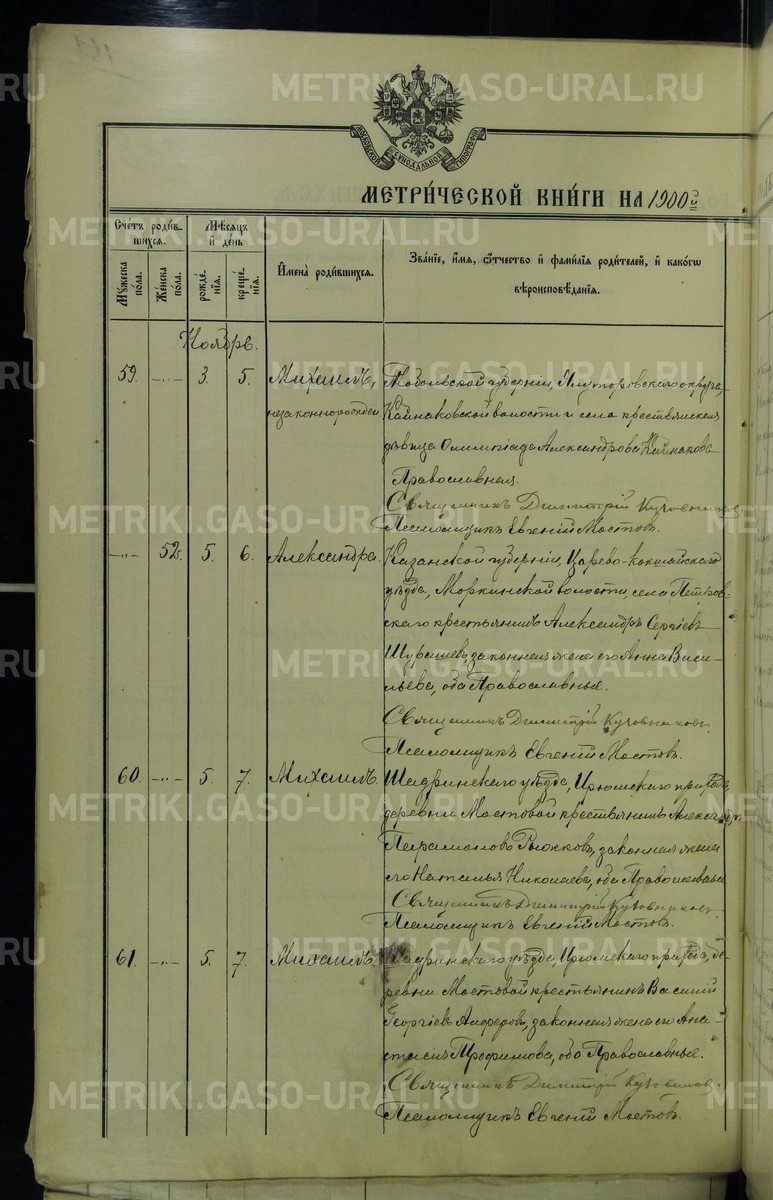 METRIKI.GASO-URAL.RU
МОСКОВСКОЙ СѴНОДАЛЬНОЙ ТИПОГРАФІИ
МЕТРИ́ЧЕСКОЙ КНИ́ГИ НА 1900й
Сче́тъ роди́вшихсѧ.
Мꙋ́жеска по́ла.
Же́нска по́ла.
Мѣ́сѧцъ и҆ де́нь
рожде́нїѧ.
креще́нїѧ.
И҆мена̀ роди́вшихсѧ.
Зва́нїе, и҆́мѧ, ѻ҆́тчество и҆ фами́лїѧ роди́телей, и҆ како́гѡ
вѣроисповѣ́данїѧ.
Ноябрь.
59. -"- 3. 5. Михаилъ, Тобольской губерніи, Ялуторовскаго округа,
незаконнорожден. волости и села крестьянская
дѣвица Олимпіада Александрова
Православная.
Священникъ Димитрій
Псаломщикъ Евгеній Мостовъ.
-"- 52. 5. 6. Александра. Казанской губерніи, Царево-кокшайскаго
уѣзда, Моркинской волости, села Петров-
скаго крестьянинъ Александръ Сергіевъ
законная жена его Анна Васи-
льева, оба Православные.
Священникъ Димитрій
Псаломщикъ Евгеній Мостовъ.
60. -"- 5. 7. Михаилъ. Шадринскаго уѣзда, прихода,
деревни Мостовой крестьянинъ
Парамоновъ законная жена
его Наталья Николаева, оба Православные
Священникъ Димитрій
Псаломщикъ Евгеній Мостовъ.
61. -"- 5. 7. Михаилъ. Шадринскаго уѣзда, прихода, де-
ревни Мостовой крестьянинъ Василій
Георгіевъ законная жена его Ана-
стасія Трофимова, оба Православные.
Священникъ Димитрій
Псаломщикъ Евгеній Мостовъ.